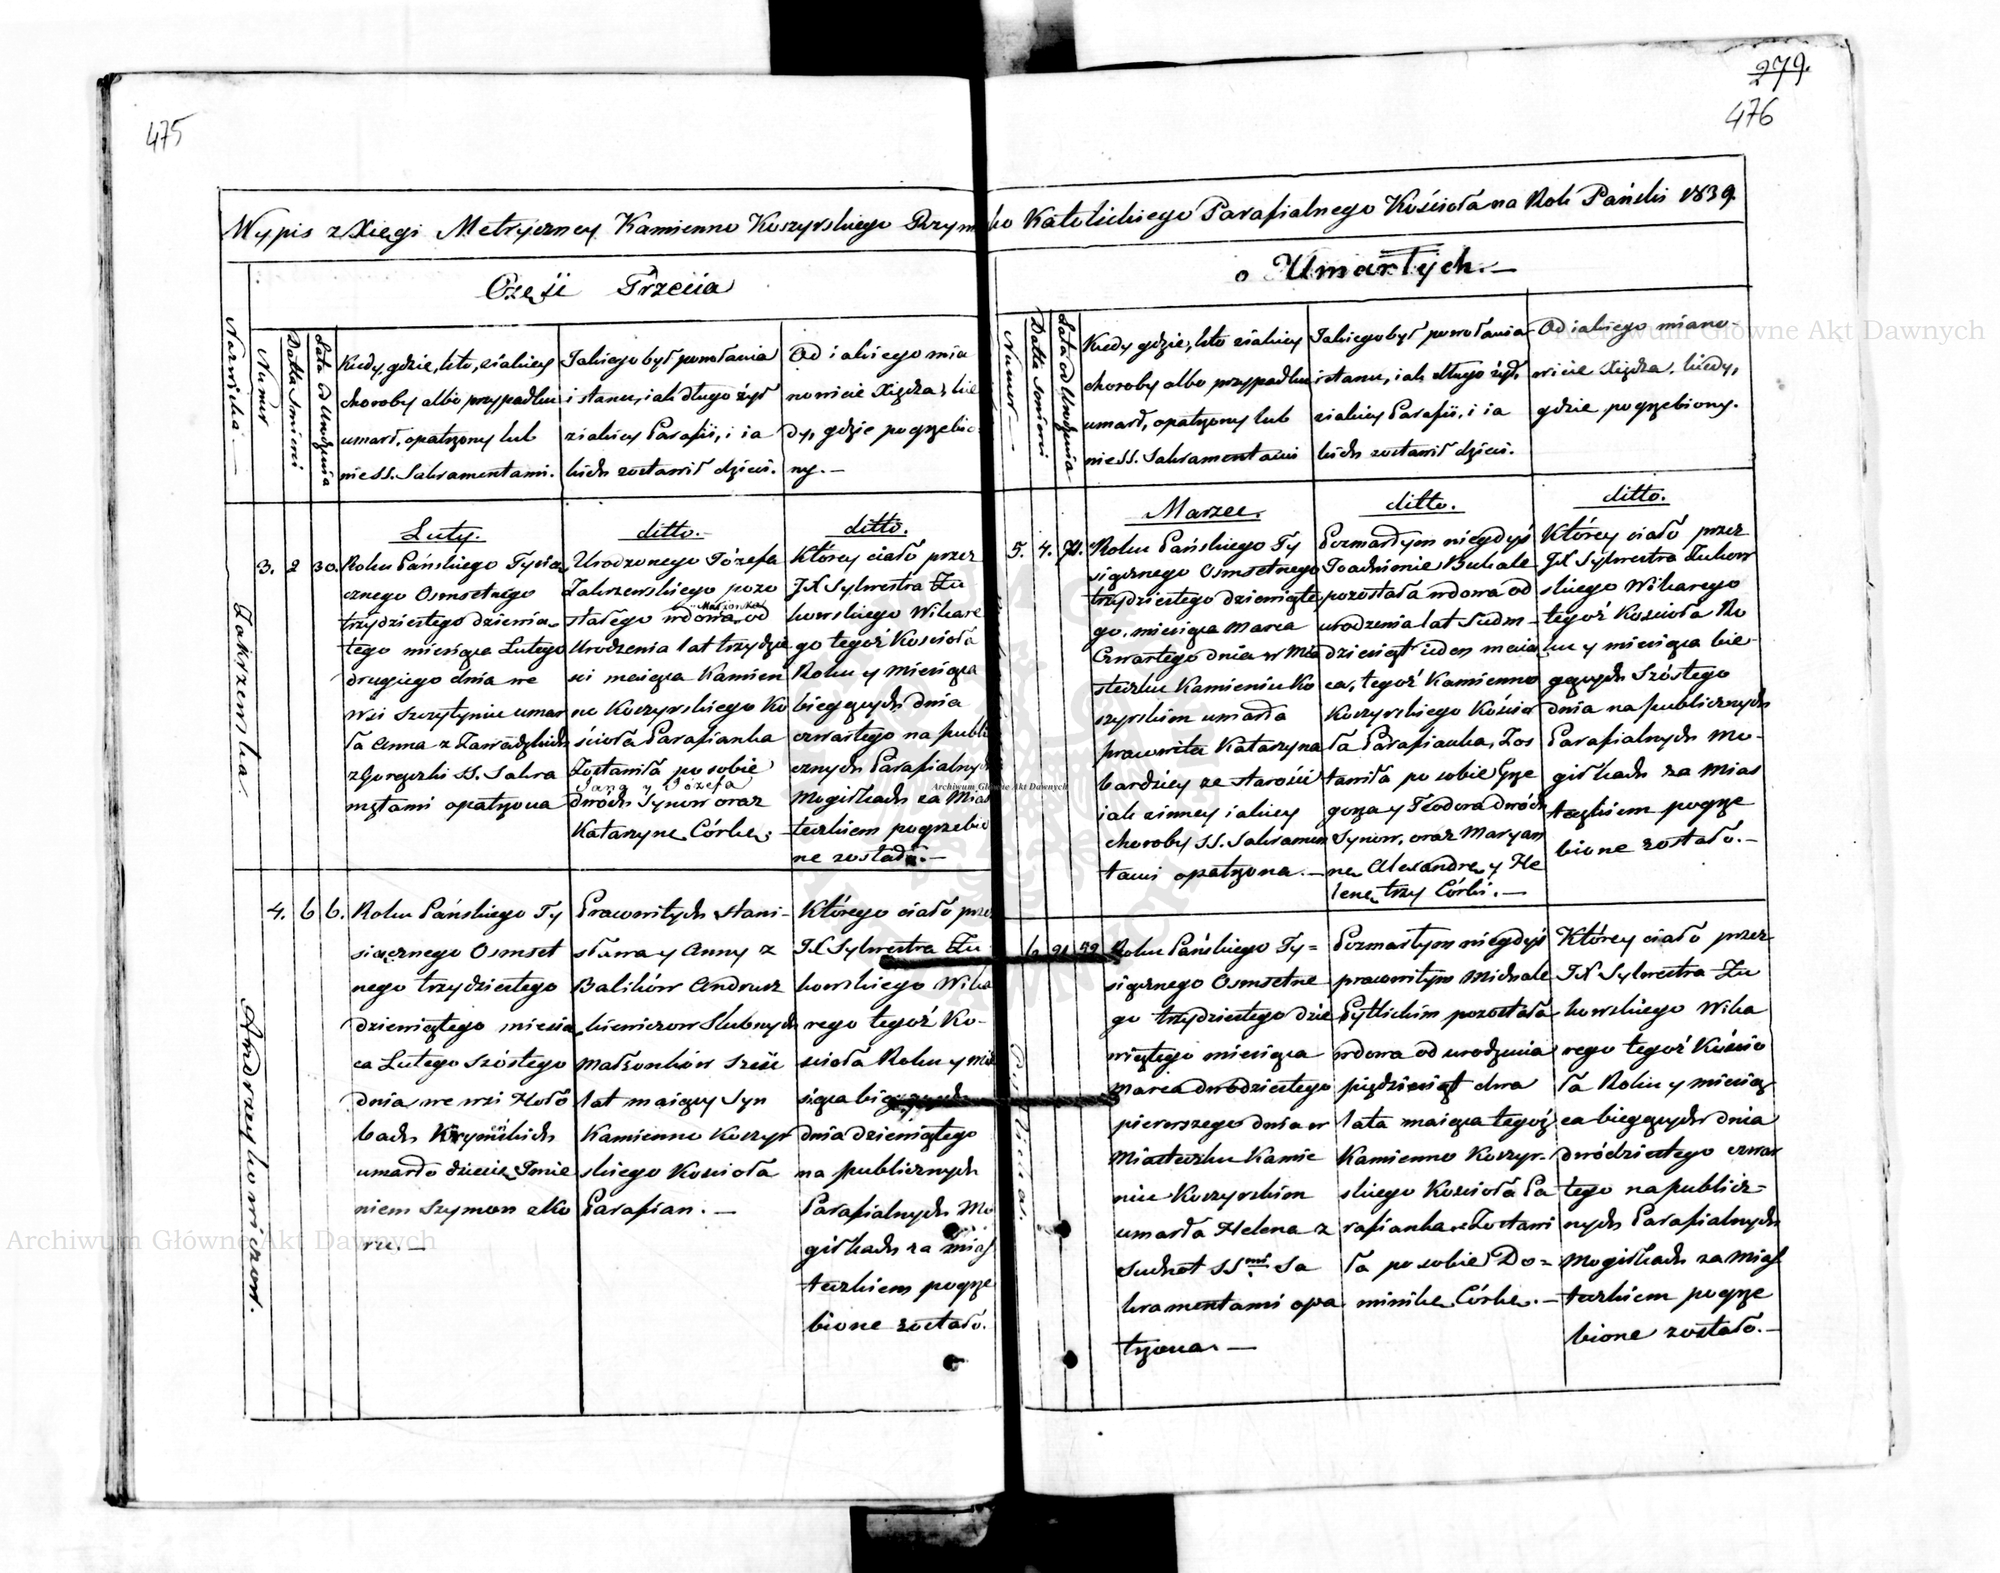 475
279.
476
Wypis z Xięgi Metryczney Kamienno Koszyrskiego Rzymsko Katolickiego Parafialnego Kościoła na Rok Pański 1839.
Część Trzecia
o Umarłych.—
Nazwiska.
Numer
Datta Smierci
Lata od Urodzenia
Kiedy, gdzie, kto, z iakiey
choroby albo przypadku
umarł, opatrzony lub
nie SS. Sakramentami.
Jakiego był powołania
i stanu, iak długo żył
z iakiey Parafii, i ia
kich zostawił dzieci.
Od iakiego mia
nowicie Xiędza, kie
dy, gdzie pogrzebio
ny.—
Luty.
ditto.
ditto.
Zakrzewska.
3. 2 30.
Roku Pańskiego Tysią
cznego Osmsetnego
trzydziestego dziewią
tego miesiąca Lutego
drugiego dnia we
wsi Szczytyniu umar
ła Anna z Zawadzkich
z gorączki SS. Sakra
mętami opatrzona
Urodzonego Józefa
Zakrzewskiego pozo
stałego wdowa od
Małżonka
Urodzenia lat trzydzie
ści maiąca Kamien
no Koszyrskiego Ko
ścioła Parafianka
Zostawiła po sobie
Jana y Józefa
dwóch Synow oraz
Katarzynę Córkę.
Którey ciało przez
JX Sylwestra Żu
kowskiego Wikare
go tegoż Kościoła
Roku y miesiąca
bieżących dnia
czwartego na publi
cznych Parafialnych
Mogiłkach za Mias
teczkiem pogrzebio
ne zostało.—
Andrzeykowiczow.
4. 6 6.
Roku Pańskiego Ty
siącznego Osmset
nego trzydziestego
dziewiątego miesią
ca Lutego Szóstego
dnia we wsi Hoło
bach Krymskich
umarło dziecie Imie
niem Szymon z Ko
ru.—
Prawowitych Stani-
sława y Anny z
Balików Andrusz
kiewiczow Slubnych
Małżonków Sześć
lat maiący Syn
Kamienno Koszyr
skiego Kościoła
Parafian.—
Którego ciało przez
JX Sylwestra Żu
kowskiego Wika
rego tegoż Ko-
ścioła Roku y mie
siąca bieżących
dnia dziewiątego
na publicznych
Parafialnych Mo
giłkach za Mias
teczkiem pogrze
bione zostało.
Numer
Datta Smierci
Lata od Urodzenia
Kiedy gdzie, kto z iakiey
choroby albo przypadku
umarł, opatrzony lub
nie SS. Sakramentami
Jakiego był powołania
i stanu, iak długo żył,
z iakiey Parafii, i ia
kich zostawił dzieci.
Od iakiego miano-
wicie Xiędza, kiedy,
gdzie pogrzebiony.
Marzec.
ditto.
ditto.
5. 4.
Roku Pańskiego Ty
siącznego Osmsetnego
trzydziestego dziewiąte
go, miesiąca Marca
Czwartego dnia w Mia
steczku Kamieniu Ko
szyrskim umarła
prawowita Katarzyna
bardziey ze starości
iak z inney iakiey
choroby SS. Sakramen
tami opatrzona.—
Po zmarłym niegdyś
Joachimie Bukale
pozostała wdowa od
urodzenia lat Siedm-
dziesiąt ieden maią
ca, tegoż Kamienno
Koszyrskiego Kościo
ła Parafianka, Zos
tawiła po sobie Grze
gorza y Teodora dwóch
Synow, oraz Maryan
nę Alexandrę y He
lenę trzy Córki.—
Którey ciało przez
JX Sylwestra Żukow
skiego Wikarego
tegoż Kościoła Ro
ku y miesiąca bie-
żących Szóstego
dnia na publicznych
Parafialnych Mo-
giłkach za Mias
teczkiem pogrze
bione zostało.—
6 21 52
Roku Pańskiego Ty=
siącznego Osmsetne
go trzydziestego dzie
wiątego miesiąca
Marca dwódziestego
pierwszego dnia w
Miasteczku Kamie
niu Koszyrskim
umarła Helena z
Suchot SSmi. Sa
kramentami opa
trzona.—
Po zmarłym niegdyś
prawowitym Michale
Pytlickim pozostała
wdowa od urodzenia
pięćdziesiąt dwa
lata maiąca tegoż
Kamienno Koszyr-
skiego Kościoła Pa
rafianka. Zostawi
ła po sobie Do=
minikę Córkę.—
Którey ciało przez
JX Sylwestra Żu
kowskiego Wika
rego tegoż Kościo
ła Roku y miesią
ca bieżących dnia
dwódziestego czwar
tego na publicz=
nych Parafialnych
Mogiłkach za Mias
teczkiem pogrze
bione zostało.—
Archiwum Główne Akt Dawnych
Archiwum Główne Akt Dawnych
Archiwum Główne Akt Dawnych